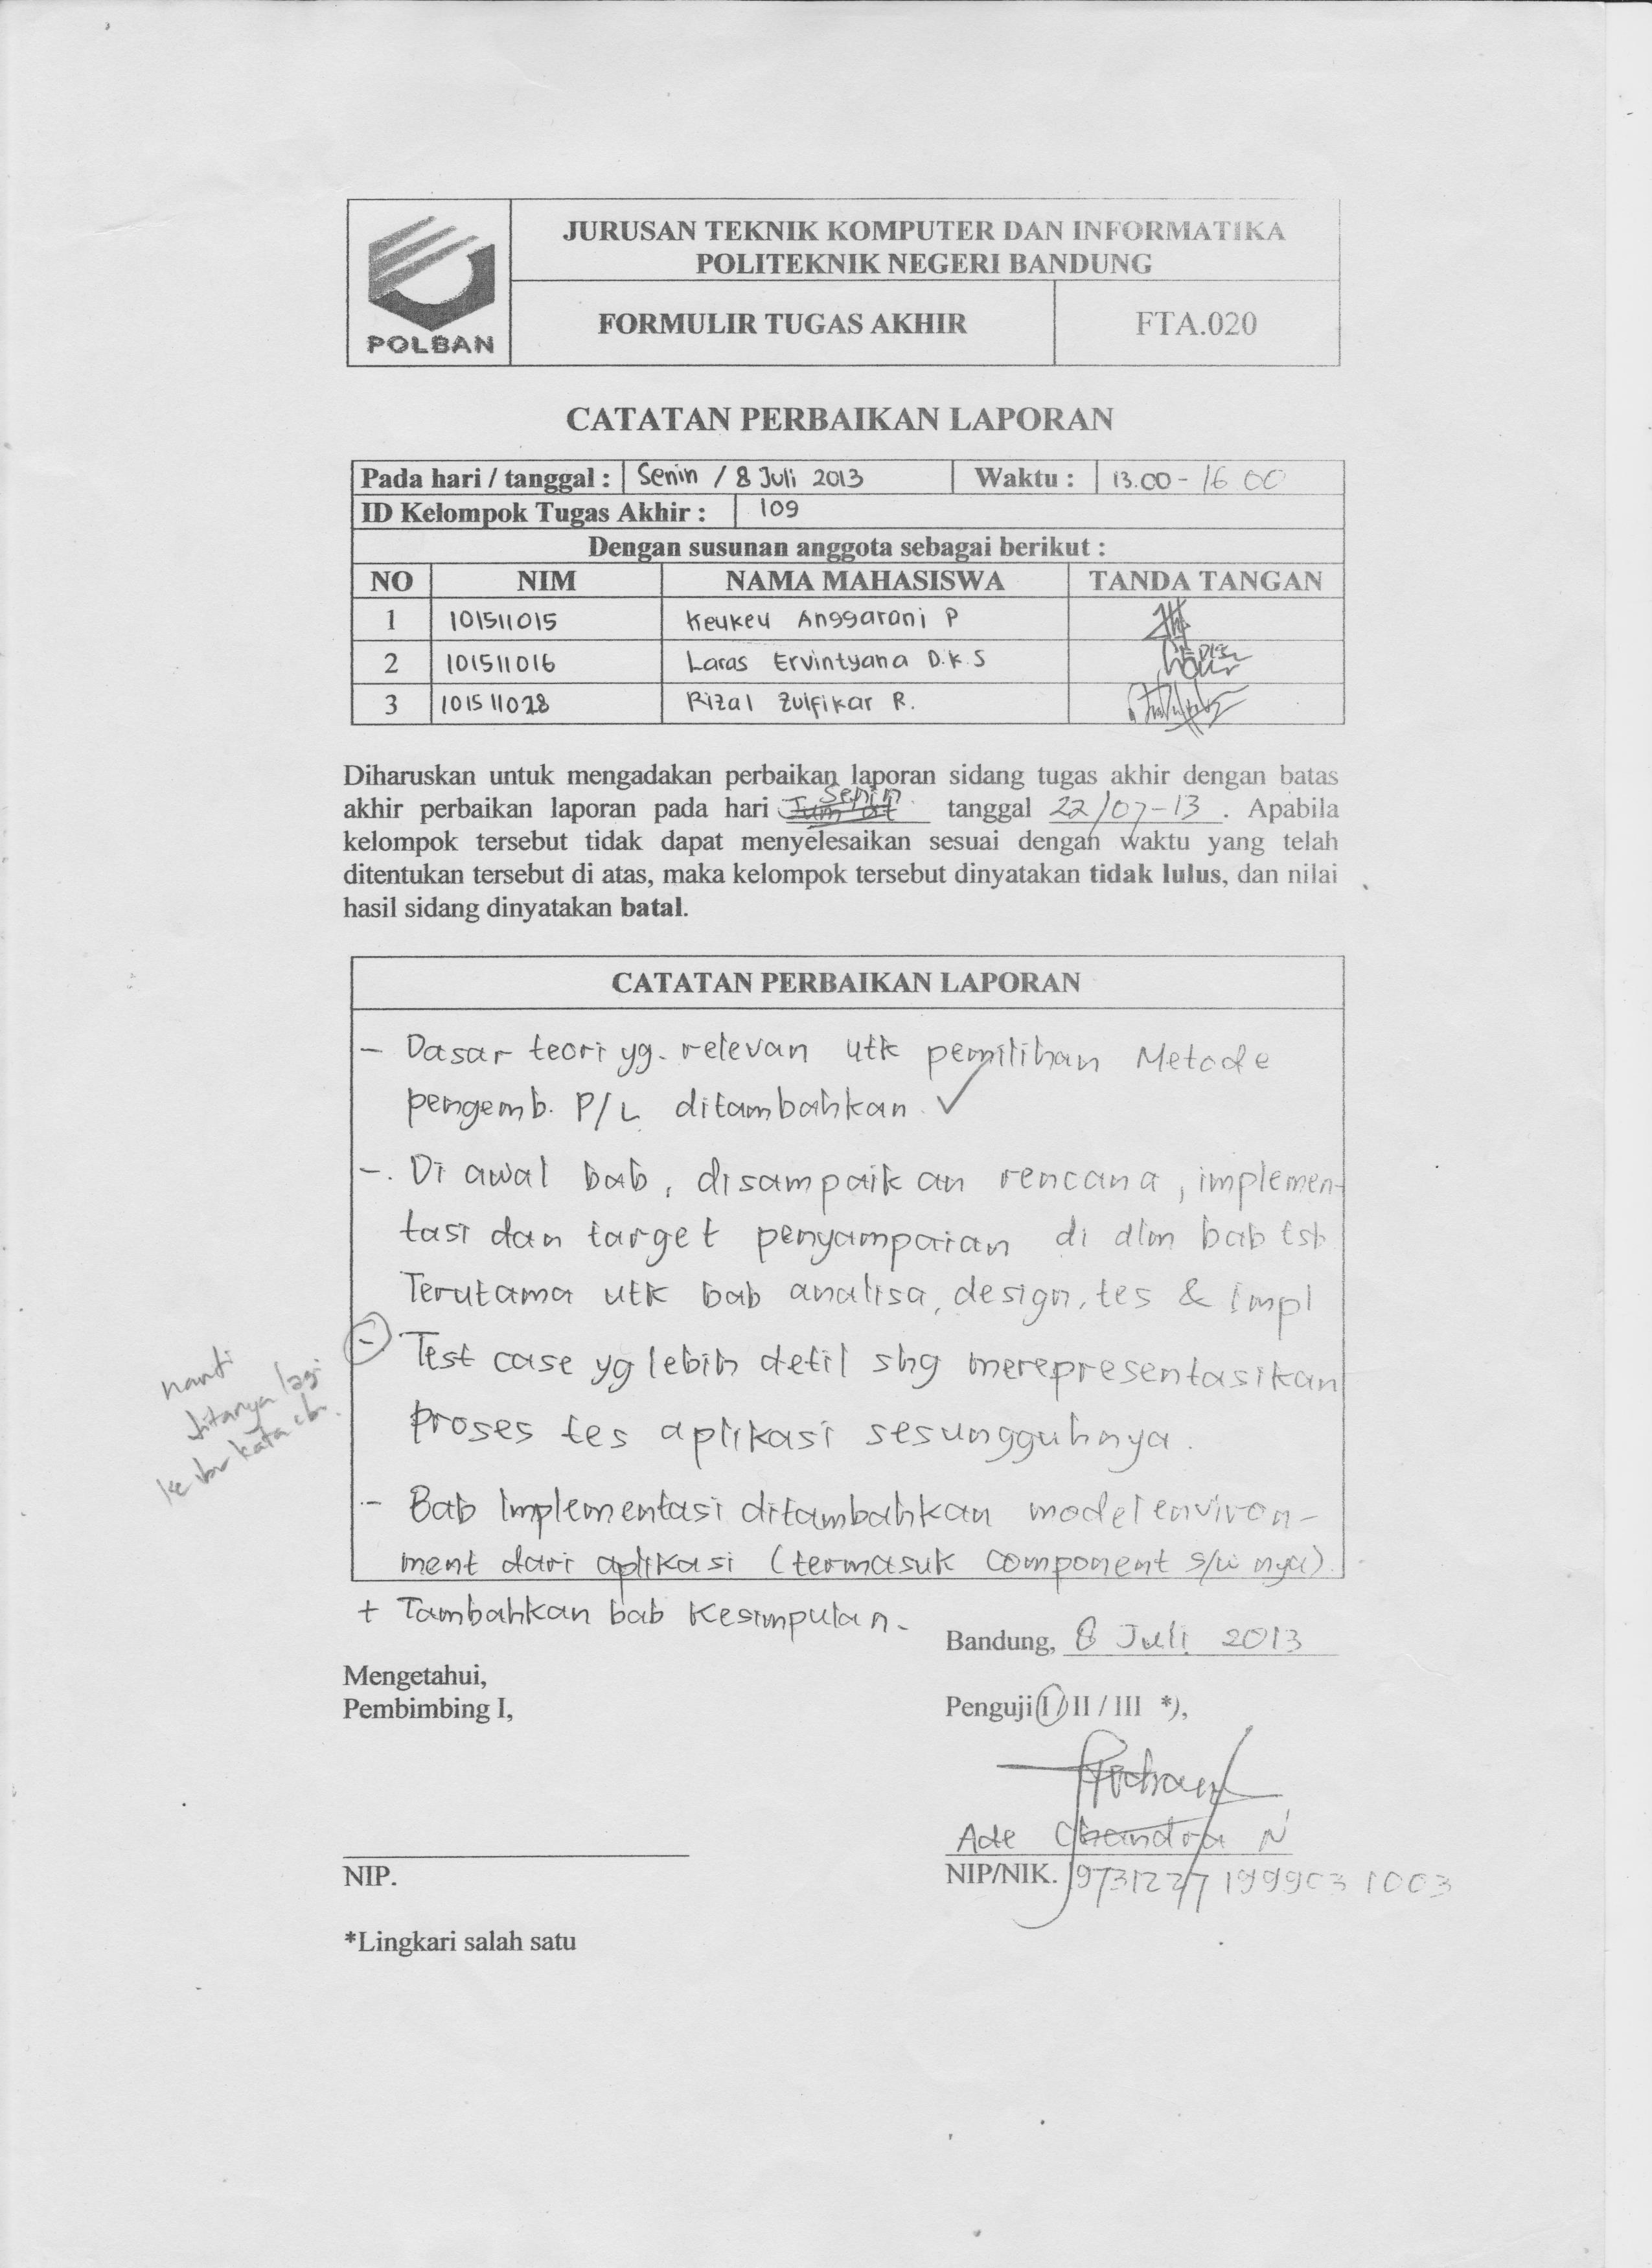 POLBAN
JURUSAN TEKNIK KOMPUTER DAN INFORMATIKA
POLITEKNIK NEGERI BANDUNG
FORMULIR TUGAS AKHIR FTA.020
CATATAN PERBAIKAN LAPORAN
Pada hari / tanggal : Senin / 8 Juli 2013 Waktu : 13.00 - 16 00
ID Kelompok Tugas Akhir : 109
Dengan susunan anggota sebagai berikut :
NO NIM NAMA MAHASISWA TANDA TANGAN
1 101511015 Keukeu Anggarani P
2 101511016 Laras Ervintyana D.K.S
3 101511028 Rizal Zulfikar R.
Diharuskan untuk mengadakan perbaikan laporan sidang tugas akhir dengan batas
akhir perbaikan laporan pada hari Jum'at Senin tanggal 22/07-13. Apabila
kelompok tersebut tidak dapat menyelesaikan sesuai dengan waktu yang telah
ditentukan tersebut di atas, maka kelompok tersebut dinyatakan tidak lulus, dan nilai
hasil sidang dinyatakan batal.
CATATAN PERBAIKAN LAPORAN
- Dasar teori yg. relevan utk pemilihan Metode
pengemb. P/L ditambahkan. ✓
-. Di awal bab, disampaikan rencana, implemen-
tasi dan target penyampaian di dlm bab tsb
Terutama utk bab analisa, design, tes & impl
- Test case yg lebih detil shg merepresentasikan
proses tes aplikasi sesungguhnya.
nanti
ditanya lagi
ke ibu kata
- Bab Implementasi ditambahkan model environ-
ment dari aplikasi (termasuk component s/w nya).
+ Tambahkan bab Kesimpulan.
Bandung, 8 Juli 2013
Mengetahui,
Pembimbing I, Penguji I / II / III *),
Ade Chandra N
NIP. NIP/NIK. 19731227 199903 1003
*Lingkari salah satu